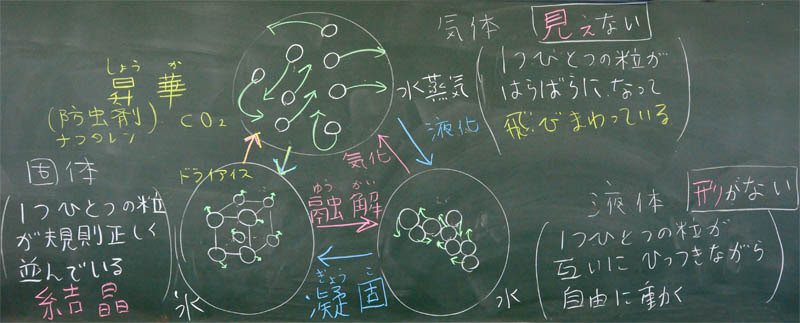 気体 見えない
1つびとつの粒が
ばらばらに、なって
飛びまわっている
しょう か
昇華
(防虫剤)
ナフタレン
CO2
水蒸気
液化
気化
ドライアイス
固体
1つひとつの粒
が規則正しく
並んでいる
結晶
氷
ゆう かい
融解
ぎょう こ
凝固
水
液体 形がない
1つひとつの粒が
互いに ひっつきながら
自由に動く